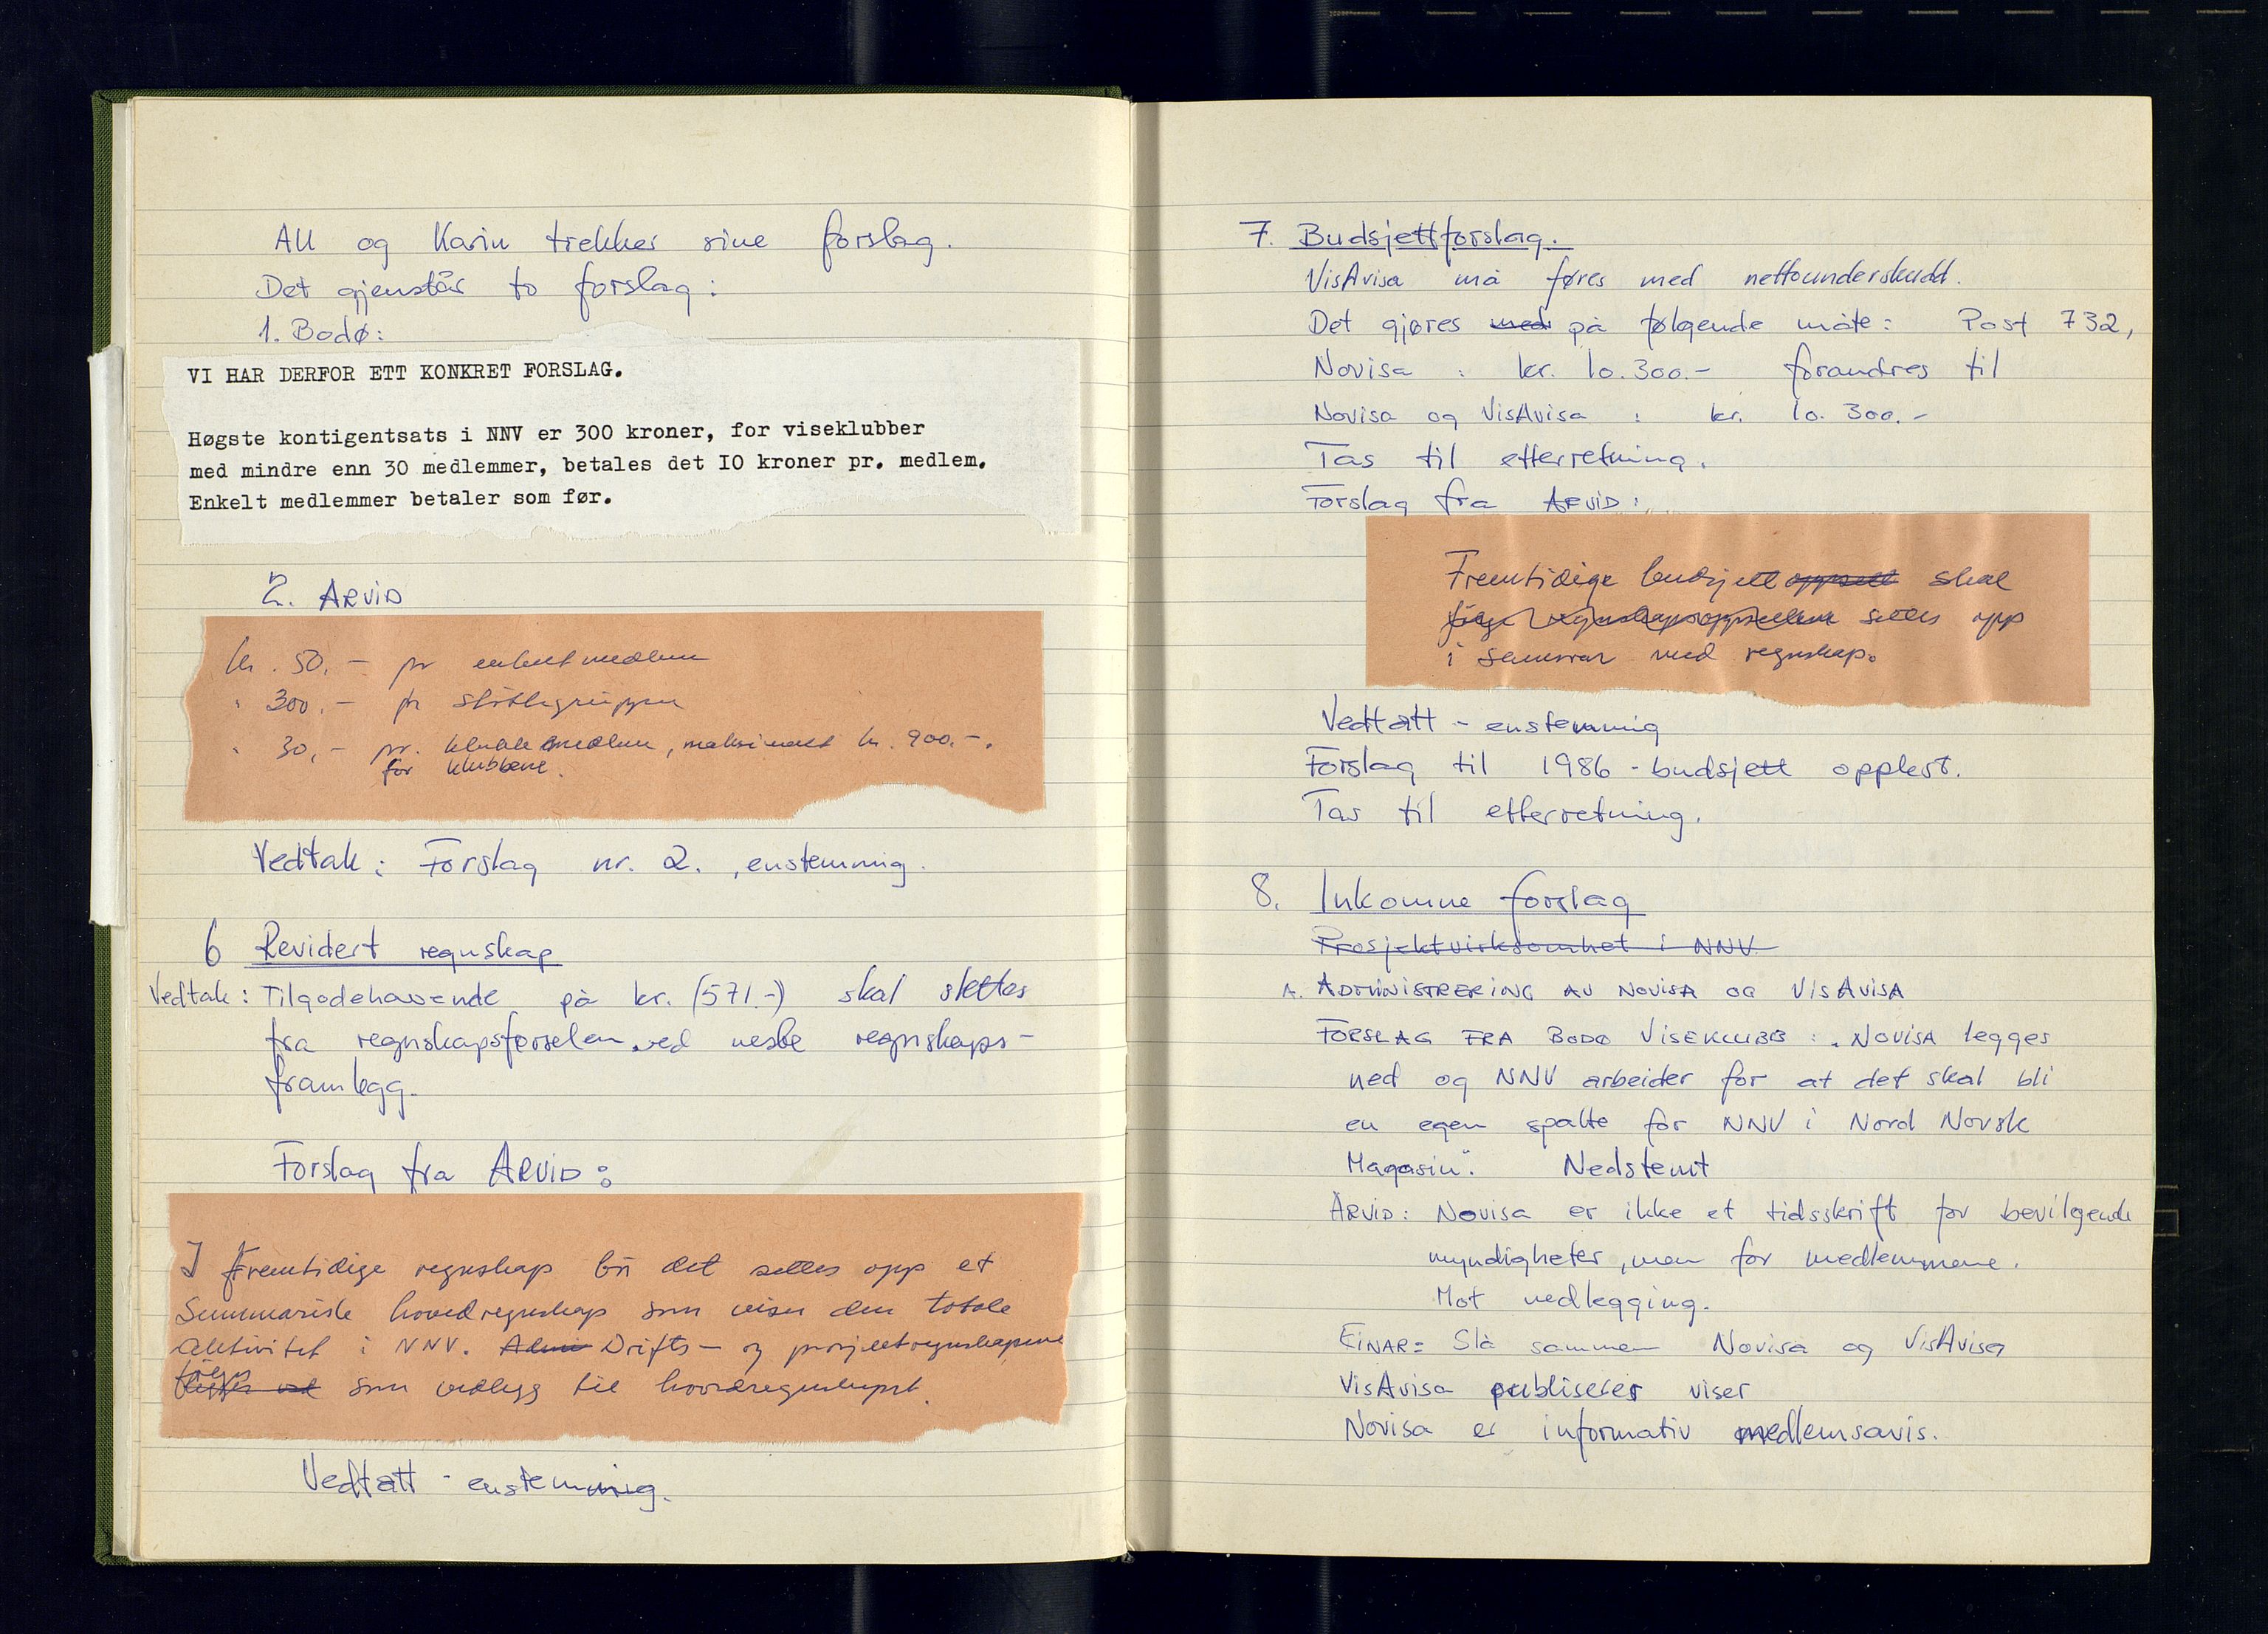 AU og Karin trekker sine forslag.
Det gjenstår to forslag:
1. Bodø:
VI HAR DERFOR ETT KONKRET FORSLAG.
Høgste kontigentsats i NNV er 300 kroner, for viseklubber
med mindre enn 30 medlemmer, betales det IO kroner pr. medlem.
Enkelt medlemmer betaler som før.
2. ARVID
kr. 50,- pr enkeltmedlem
" 300,- pr støttegruppe
" 30,- pr. klubbmedlem, maksimalt kr. 900.-.
for klubbene.
Vedtak: Forslag nr. 2., enstemmig.
6 Revidert regnskap
Vedtak: Tilgodehavende på kr. (571.-) skal slettes
fra regnskapsførselen ved neste regnskaps-
framlegg.
Forslag fra ARVID:
I fremtidige regnskap bør det settes opp et
Summarisk hovedregnskap som viser den totale
aktivitet i NNV. Drifts- og prosjektregnskapene
følger som vedlegg til hovedregnskapet.
Vedtatt - enstemmig.
7. Budsjettforslag.
VisAvisa må føres med nettounderskudd.
Det gjøres med på følgende måte: Post 732,
Novisa : kr. 10.300.- forandres til
Novisa og VisAvisa : kr. 10.300.-
Tas til etterretning.
Forslag fra ARVID:
Fremtidige budsjett oppsett skal
følge regnskapsoppsettene settes opp
i samsvar med regnskap.
Vedtatt - enstemmig
Forslag til 1986-budsjett opplest.
Tas til etterretning.
8. Inkomne forslag
Prosjektvirksomhet i NNV
A. ADMINISTRERING AV NOVISA OG VISAVISA
FORSLAG FRA BODØ VISEKLUBB: "NOVISA legges
ned og NNV arbeider for at det skal bli
en egen spalte for NNV i Nord Norsk
Magasin". Nedstemt
ARVID: Novisa er ikke et tidsskrift for bevilgende
myndigheter, men for medlemmene.
Mot nedlegging.
EINAR: Slå sammen Novisa og VisAvisa
VisAvisa publiserer viser
Novisa er informativ medlemsavis.